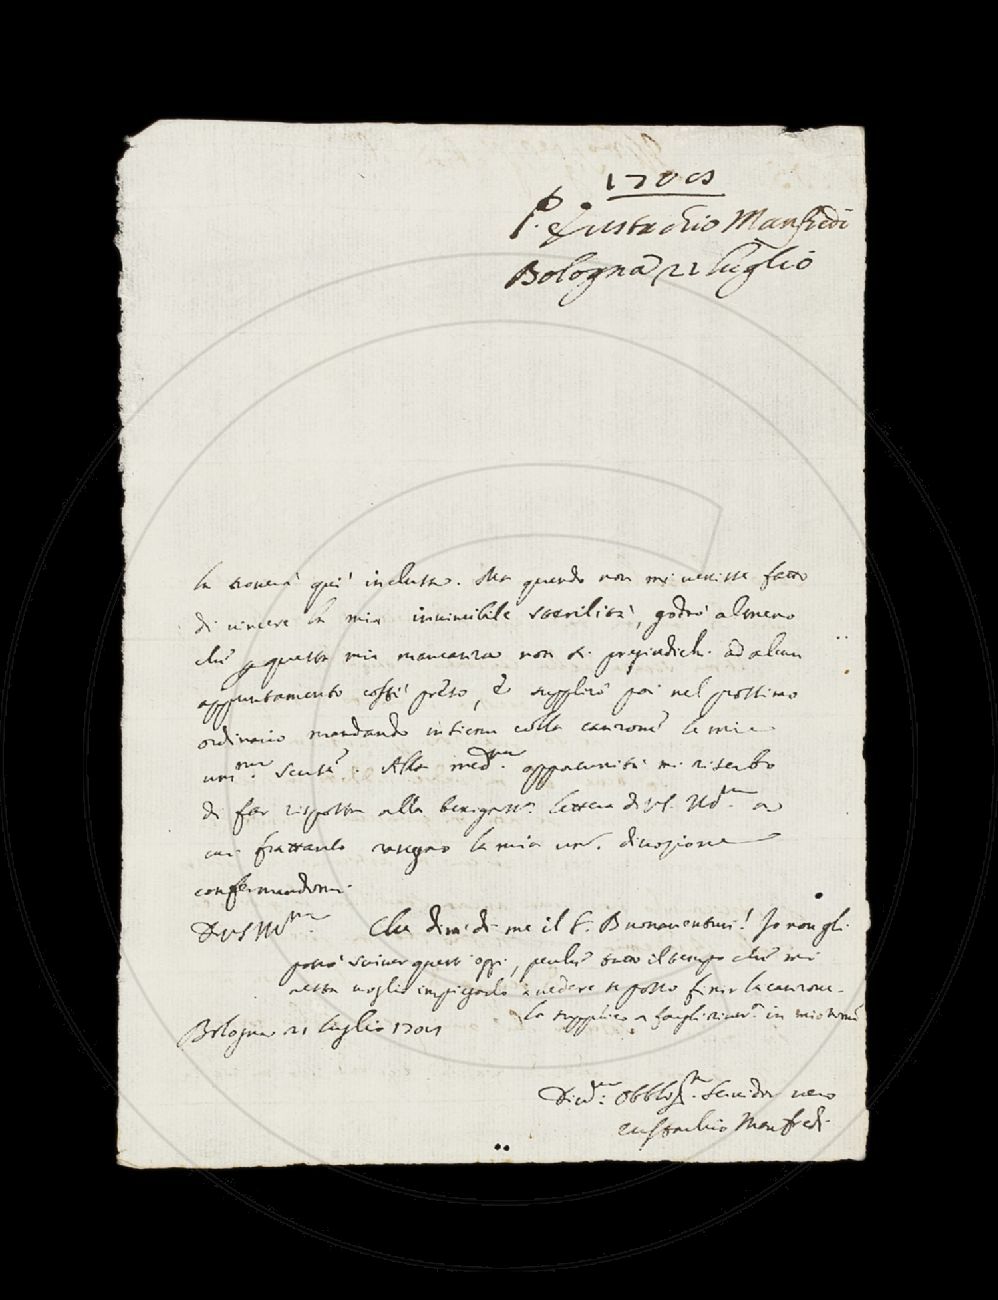 1704
P. Eustachio Manfredi
Bologna 21 luglio
la troverà qui inclusa. Ma quando non mi venisse fatto
di vincere la mia invincibile sterilità, godrò almeno
che p questa mia mancanza non si pregiudichi ad alcun
appuntamento costì preso, e supplirò poi nel prossimo
ordinario mandando insieme colla canzone le mie
um.me scuse. Alla med.ma opportunità mi riserbo
di far risposta alla benigniss.a lettera di VS. Ill.ma a
cui frattanto rassegno la mia um. divozione
confermandomi
D VS Ill.ma Che dirà di me il S. Buonaventuri! Io non gli
potrò scriver questi oggi, perchè tutto il tempo che mi
resta voglio impiegarlo a vedere se posso finir la canzone.
La supplico a fargli river.a in mio nome
Bologna 21 luglio 1704
Div.mo Obblig.mo Servidor vero
Eustachio Manfredi